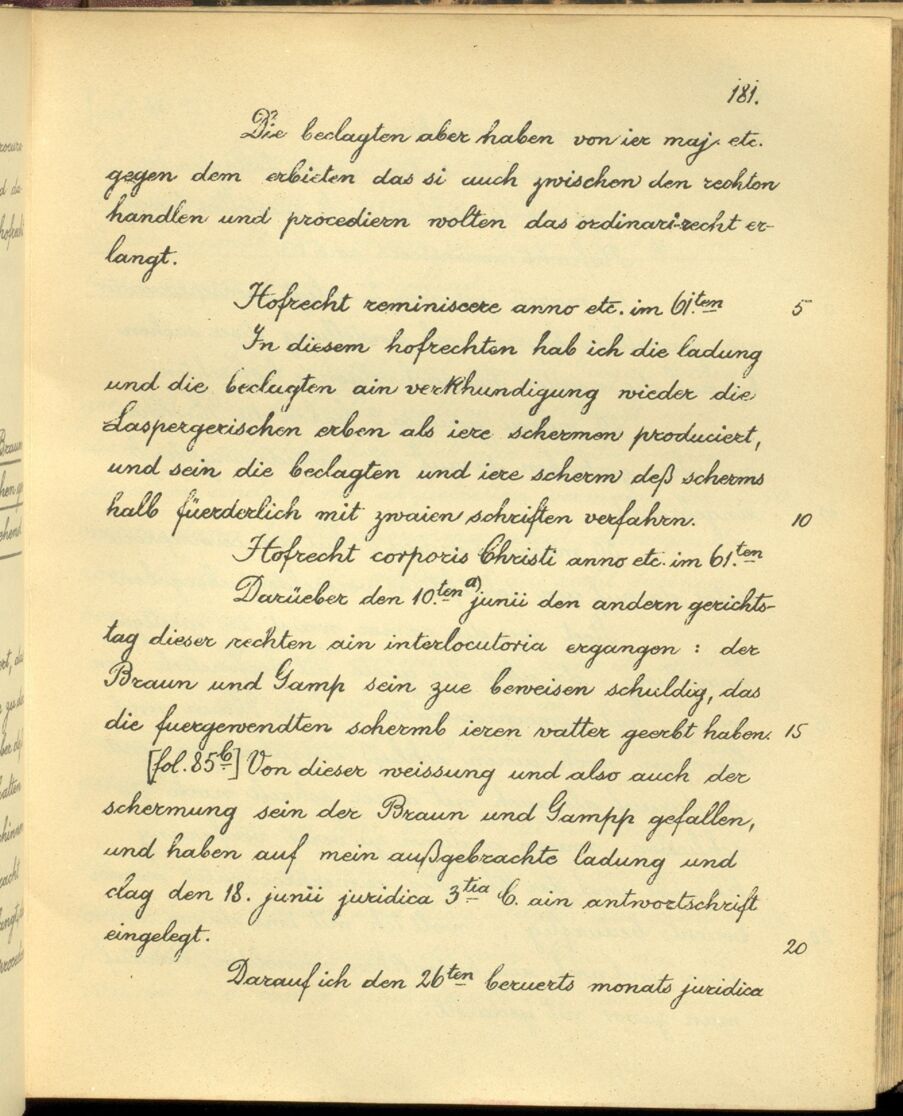 181.
Die beclagten aber haben von ier maj. etc.
gegen dem erbieten das si auch zwischen den rechten
handlen und procediern wolten das ordinari-recht er-
langt.
Hofrecht reminiscere anno etc. im 61.ten 5
In diesem hofrechten hab ich die ladung
und die beclagten ain verkhundigung wieder die
Laspergerischen erben als iere schermen produciert,
und sein die beclagten und iere scherm deß scherms
halb füerderlich mit zwaien schriften verfahrn. 10
Hofrecht corporis Christi anno etc. im 61.ten
Darüeber den 10.ten a) junii den andern gerichts-
tag dieser rechten ain interlocutoria ergangen: der
Braun und Gamp sein zue beweisen schuldig, das
die fuergewendten schermb ieren vatter geerbt haben. 15
[fol. 85b] Von dieser weissung und also auch der
schermung sein der Braun und Gampp gefallen,
und haben auf mein außgebrachte ladung und
clag den 18. junii juridica 3tia C. ain antwortschrift
eingelegt. 20
Darauf ich den 26ten beruerts monats juridica